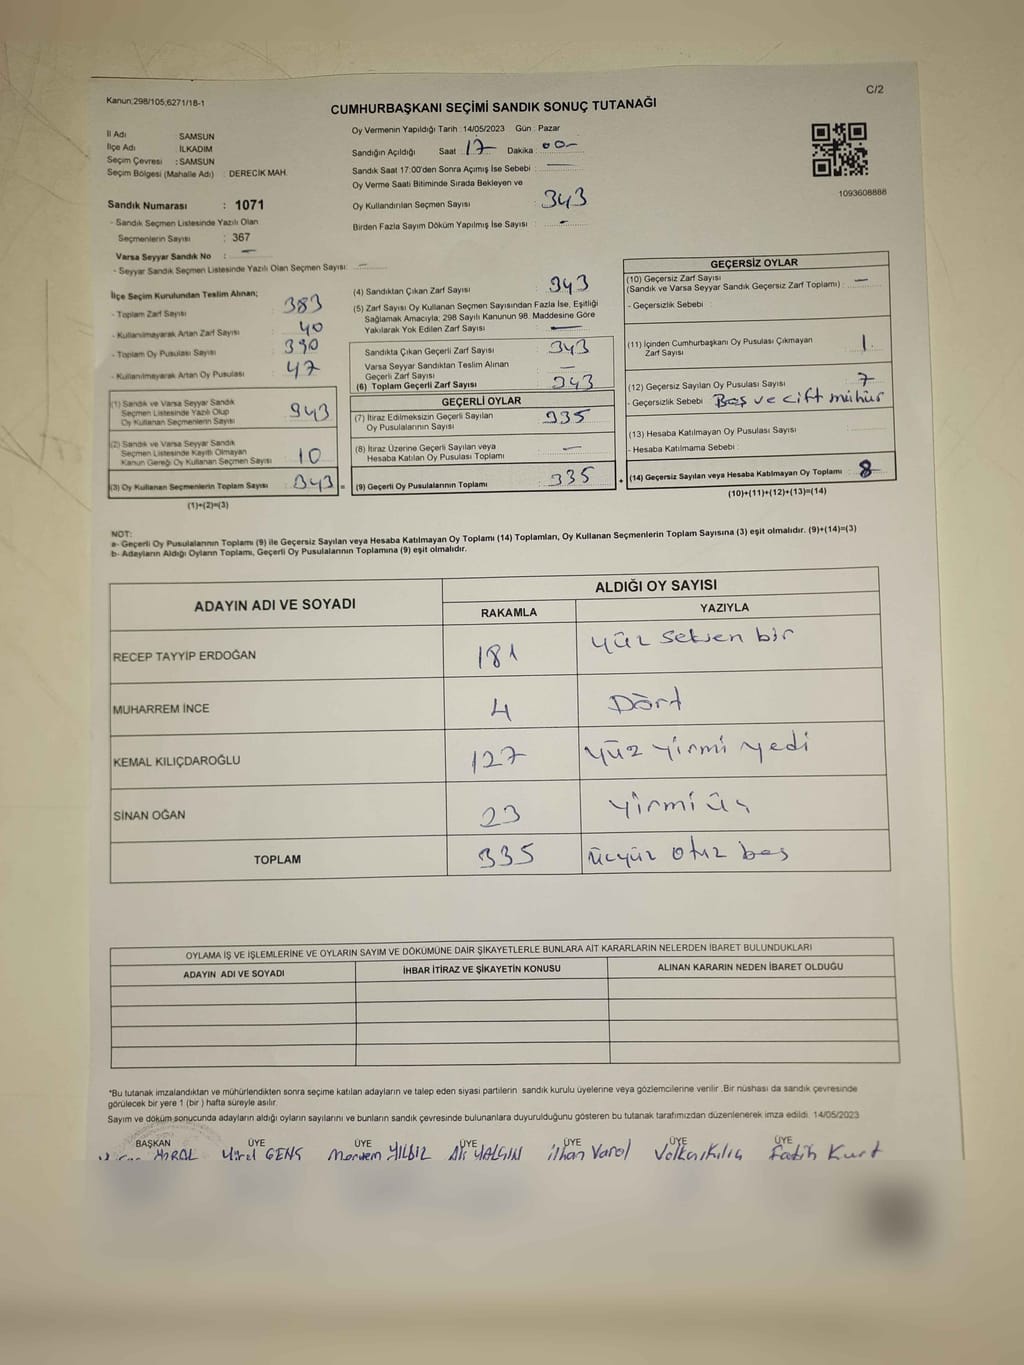 Kanun;298/105;6271/18-1
C/2
CUMHURBAŞKANI SEÇİMİ SANDIK SONUÇ TUTANAĞI
İl Adı : SAMSUN
İlçe Adı : İLKADIM
Seçim Çevresi : SAMSUN
Seçim Bölgesi (Mahalle Adı) : DERECİK MAH.
Sandık Numarası : 1071
- Sandık Seçmen Listesinde Yazılı Olan
Seçmenlerin Sayısı : 367
Varsa Seyyar Sandık No : —
- Seyyar Sandık Seçmen Listesinde Yazılı Olan Seçmen Sayısı: —
Oy Vermenin Yapıldığı Tarih : 14/05/2023 Gün : Pazar
Sandığın Açıldığı Saat : 17 Dakika : 00
Sandık Saat 17:00'den Sonra Açımış İse Sebebi : —
Oy Verme Saati Bitiminde Sırada Bekleyen ve
Oy Kullandırılan Seçmen Sayısı : 343
Birden Fazla Sayım Döküm Yapılmış İse Sayısı : —
1093608888
İlçe Seçim Kurulundan Teslim Alınan;
- Toplam Zarf Sayısı : 383
- Kullanılmayarak Artan Zarf Sayısı : 40
- Toplam Oy Pusulası Sayısı : 390
- Kullanılmayarak Artan Oy Pusulası : 47
(1) Sandık ve Varsa Seyyar Sandık
Seçmen Listesinde Yazılı Olup
Oy Kullanan Seçmenlerin Sayısı : 943
(2) Sandık ve Varsa Seyyar Sandık
Seçmen Listesinde Kayıtlı Olmayan
Kanun Gereği Oy Kullanan Seçmen Sayısı : 10
(3) Oy Kullanan Seçmenlerin Toplam Sayısı : 343 =
(1)+(2)=(3)
(4) Sandıktan Çıkan Zarf Sayısı : 343
(5) Zarf Sayısı Oy Kullanan Seçmen Sayısından Fazla İse, Eşitliği
Sağlamak Amacıyla; 298 Sayılı Kanunun 98. Maddesine Göre
Yakılarak Yok Edilen Zarf Sayısı : —
Sandıkta Çıkan Geçerli Zarf Sayısı : 343
Varsa Seyyar Sandıktan Teslim Alınan
Geçerli Zarf Sayısı : —
(6) Toplam Geçerli Zarf Sayısı : 343
GEÇERLİ OYLAR
(7) İtiraz Edilmeksizin Geçerli Sayılan
Oy Pusulalarının Sayısı : 335
(8) İtiraz Üzerine Geçerli Sayılan veya
Hesaba Katılan Oy Pusulası Toplamı : —
(9) Geçerli Oy Pusulalarının Toplamı : 335 +
GEÇERSİZ OYLAR
(10) Geçersiz Zarf Sayısı
(Sandık ve Varsa Seyyar Sandık Geçersiz Zarf Toplamı) : —
- Geçersizlik Sebebi :
(11) İçinden Cumhurbaşkanı Oy Pusulası Çıkmayan
Zarf Sayısı : 1
(12) Geçersiz Sayılan Oy Pusulası Sayısı : 7
- Geçersizlik Sebebi : Boş ve çift mühür
(13) Hesaba Katılmayan Oy Pusulası Sayısı :
- Hesaba Katılmama Sebebi :
(14) Geçersiz Sayılan veya Hesaba Katılmayan Oy Toplamı : 8
(10)+(11)+(12)+(13)=(14)
NOT:
a- Geçerli Oy Pusulalarının Toplamı (9) ile Geçersiz Sayılan veya Hesaba Katılmayan Oy Toplamı (14) Toplamları, Oy Kullanan Seçmenlerin Toplam Sayısına (3) eşit olmalıdır. (9)+(14)=(3)
b- Adayların Aldığı Oyların Toplamı, Geçerli Oy Pusulalarının Toplamına (9) eşit olmalıdır.
ADAYIN ADI VE SOYADI
ALDIĞI OY SAYISI
RAKAMLA YAZIYLA
RECEP TAYYİP ERDOĞAN 181 yüz seksen bir
MUHARREM İNCE 4 Dört
KEMAL KILIÇDAROĞLU 127 yüz yirmi yedi
SİNAN OĞAN 23 yirmi üç
TOPLAM 335 üçyüz otuz beş
OYLAMA İŞ VE İŞLEMLERİNE VE OYLARIN SAYIM VE DÖKÜMÜNE DAİR ŞİKAYETLERLE BUNLARA AİT KARARLARIN NELERDEN İBARET BULUNDUKLARI
ADAYIN ADI VE SOYADI İHBAR İTİRAZ VE ŞİKAYETİN KONUSU ALINAN KARARIN NEDEN İBARET OLDUĞU
*Bu tutanak imzalandıktan ve mühürlendikten sonra seçime katılan adayların ve talep eden siyasi partilerin sandık kurulu üyelerine veya gözlemcilerine verilir .Bir nüshası da sandık çevresinde
görülecek bir yere 1 (bir ) hafta süreyle asılır.
Sayım ve döküm sonucunda adayların aldığı oyların sayılarını ve bunların sandık çevresinde bulunanlara duyurulduğunu gösteren bu tutanak tarafımızdan düzenlenerek imza edildi. 14/05/2023
BAŞKAN ÜYE ÜYE ÜYE ÜYE ÜYE ÜYE
GENÇ YILDIZ Ali YALGIN İlhan Varol Volkan Kılıç Fatih Kurt